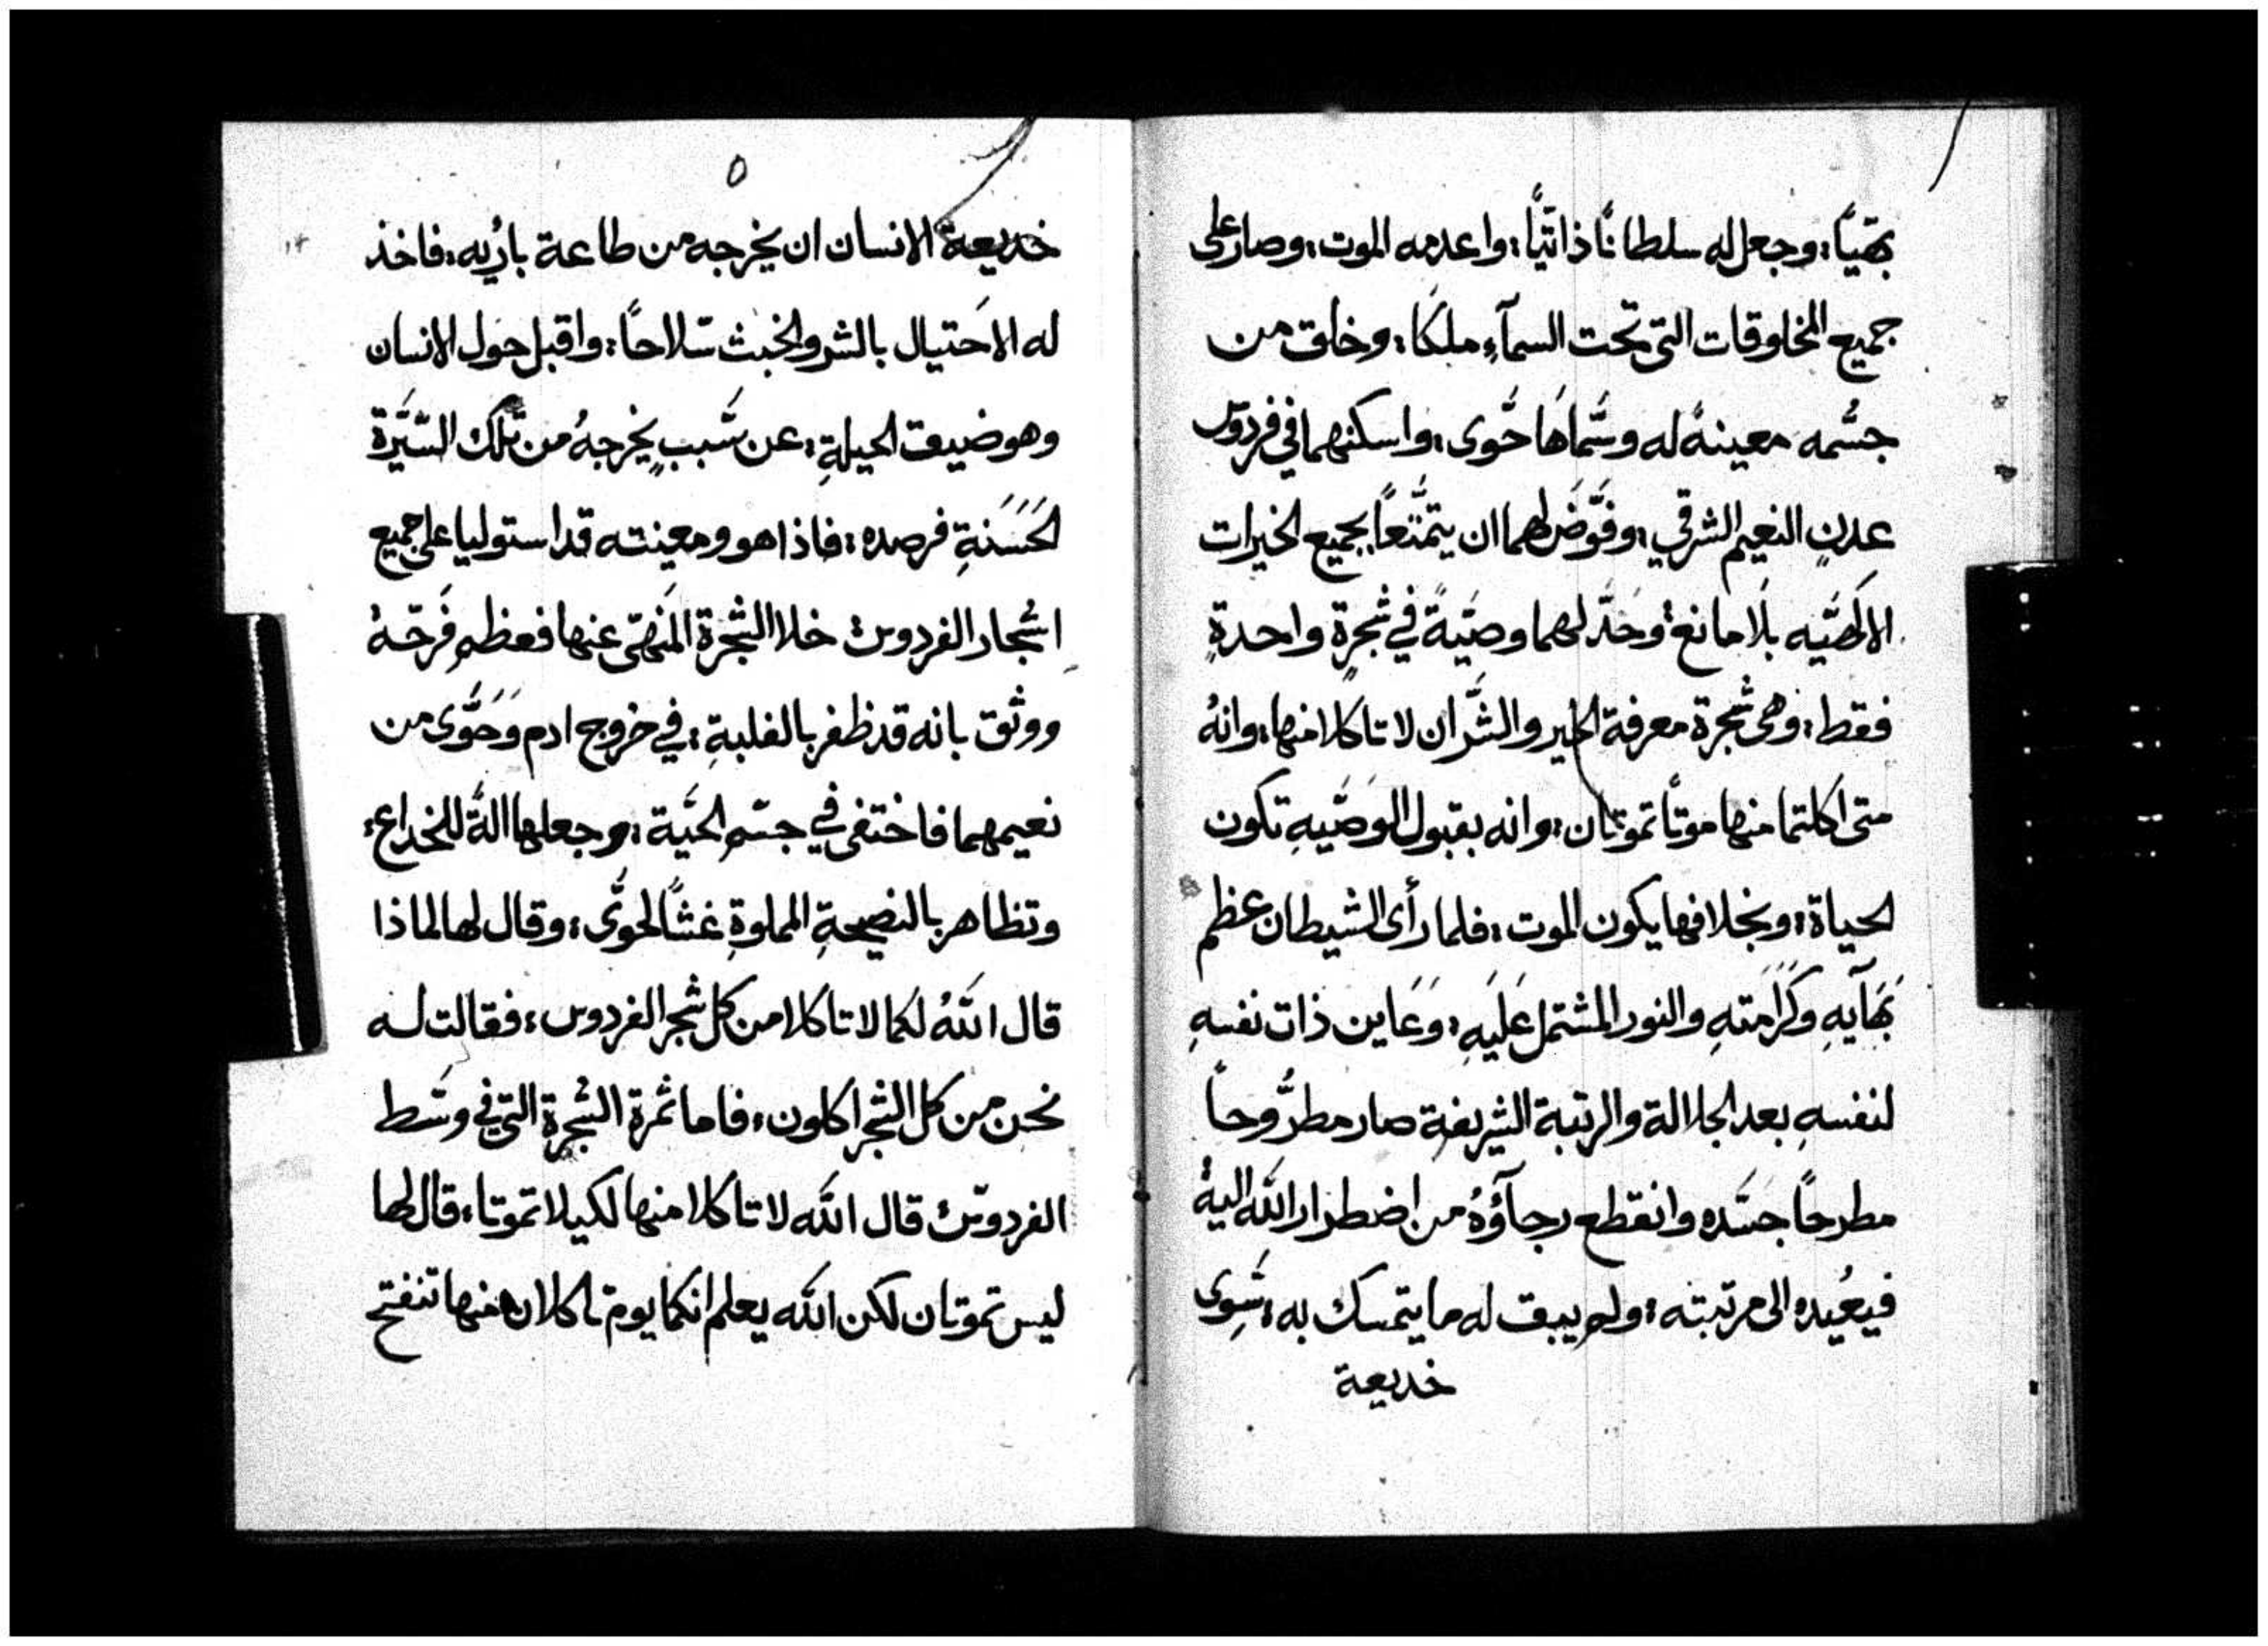 بهيًا، وجعل له سلطانًا ذاتيًّا، واعدمه الموت، وصار على
جميع المخلوقات التى تحت السمآءِ ملكًا، وخلق من
جسُّمه معينةً له وسُّماهَا حُّوى، واسكنهما في فردوّس
عدنٍ النعيم الشرقي، وفوَّضَ لهما ان يتمُّتعاً بجميع الخيرات
الالهيَّه بلَا مانع، وحَدَّ لهما وصيَّةً في شجرةٍ واحدةٍ
فقط، وهى شجرة معرفة الخير والشَّر ان لا تاكلا منها، وانهُ
متى اكلتما منها موتًا تموتان، وانه بقبول الوصَّيهِ تكون
الحياة، وبخلافها يكون الموت، فلما رأى الشيطان عظم
بَهَآيهِ وكَرَامَتهِ والنور المشتمل عَليَهِ، وعَاين ذات نفسهِ
لنفسهِ بعد الجلالة والرتبة الشريفة صار مطرُّوحاً
مطرحاً جسّده وانقطع رجآؤهُ من اضطرار الله اليهُ
فيعُيده الى مرتبته، ولم يبق له ما يتمسك به، سِّوى
خديعة
٥
خديعة الانسان ان يخرجه من طاعة بارُيه، فاخذ
له الاحَتيال بالشر والخبث سّلاحاً، واقبل حَول الانسان
وهو ضيق الحيلةِ، عن سَّببٍ يخرجهُ من تلك السّيَّرة
الحَسَنةِ فرصده، فاذا هو ومعينته قد استوليا على جميع
اشجار الفردوس خلا الشجرة المَنهّى عنها فعظم فَرحّهُ
ووثق بانه قد ظفر بالغلبةِ، في خروج ادم وَحَوَّى من
نعيمهما فاختفى في جسّم الحَيَّة، وجعلها الةً للخداع،
وتظاهر بالنصيحةِ المملوةِ غشًّا لحوَّى، وقال لها لماذا
قال اللهُ لكما لا تاكلا من كل شجر الفردوس، فقالت له
نحن من كل الشجر اكلون، فاما ثمرة الشجرة التى في وسّط
الفردوسّ قال الله لا تاكلا منها لكيلا تموتا، قال لها
ليس تموتان لكن الله يعلم انكما يوم تاكلان منها تنفتح